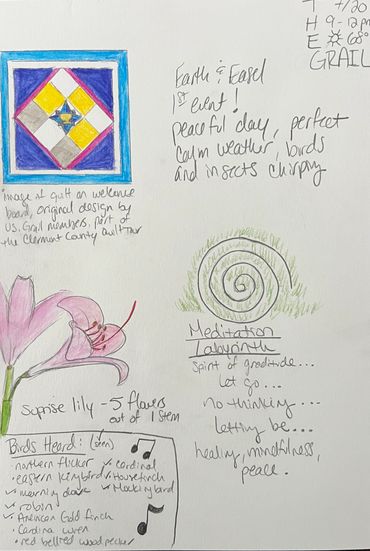 T 7/20
H 9-12pm
E 68°
GRAIL
Earth & Easel
1st event!
peaceful day, perfect
calm weather, birds
and insects chirping
image of quilt on welcome
board, original design by
US. Grail members, part of
the Clermont County Quilt Tour
Meditation
Labyrinth
spirit of gratitude...
let go...
no thinking...
letting be...
healing, mindfulness,
peace.
Suprise lily - 5 flowers
out of 1 stem
Birds Heard: (seen)
• northern flicker
• eastern kingbird
✓ morning dove
✓ robin
✓ American Gold finch
• Carolina wren
• red bellied woodpecker
✓ cardinal
✓ House finch
✓ Mockingbird